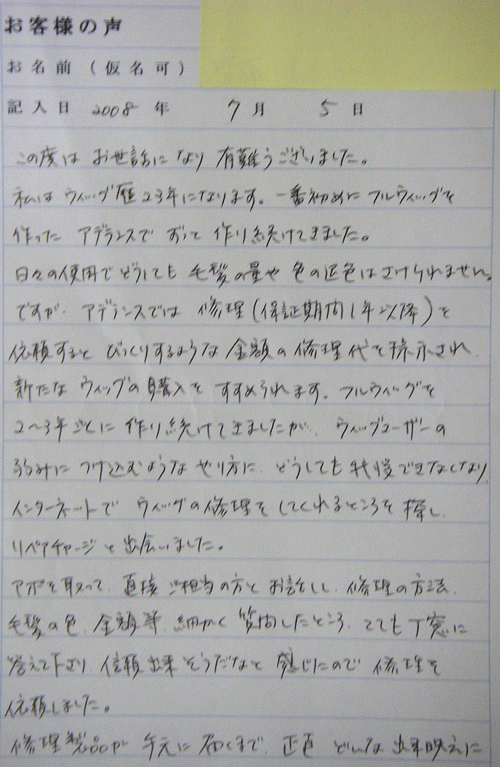 お客様の声
お名前（仮名可）
記入日 2008 年 7 月 5 日
この度は お世話になり 有難うございました。
私は ウィッグ歴23年になります。一番初めに フルウィッグを
作った アデランスで ずっと 作り続けてきました。
日々の使用で どうしても 毛髪の量や 色の退色は さけられません。
ですが、アデランスでは 修理（保証期間1年以降）を
依頼すると びっくりするような 金額の 修理代を 提示され、
新たな ウィッグの購入を すすめられます。フルウィッグを
2〜3年ごとに 作り続けてきましたが、ウィッグユーザーの
弱みに つけ込むような やり方に、どうしても 我慢できなくなり
インターネットで ウィッグの修理を してくれるところを 探し、
リペアチャージと 出会いました。
アポを取って、直接 ご担当の方と お話しし、修理の方法、
毛髪の色、金額等、細かく 質問したところ、とても 丁寧に
答えて下さり、信頼出来そうだなと 感じたので 修理を
依頼しました。
修理製品が 手元に 届くまで、正直 どんな 出来映えに